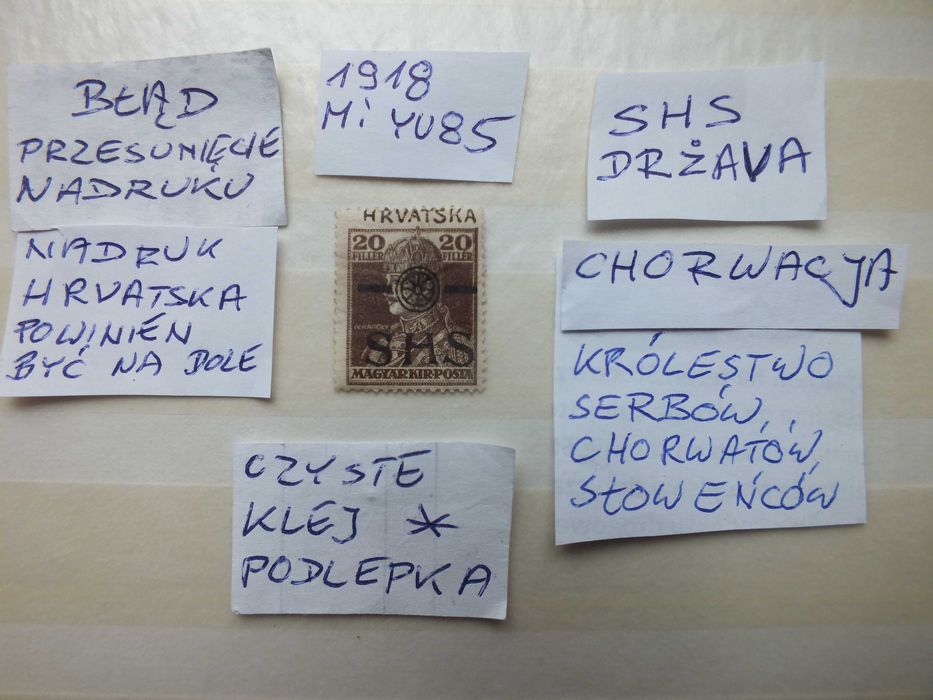 BŁĄD
PRZESUNIĘCIE
NADRUKU
1918
Mi YU85
SHS
DRŻAVA
NADRUK
HRVATSKA
POWINIEN
BYĆ NA DOLE
CHORWACJA
KRÓLESTWO
SERBÓW,
CHORWATÓW,
SŁOWEŃCÓW
HRVATSKA
20 20
FILLÉR FILLÉR
SHS
MAGYAR KIR. POSTA
CZYSTE
KLEJ *
PODLEPKA